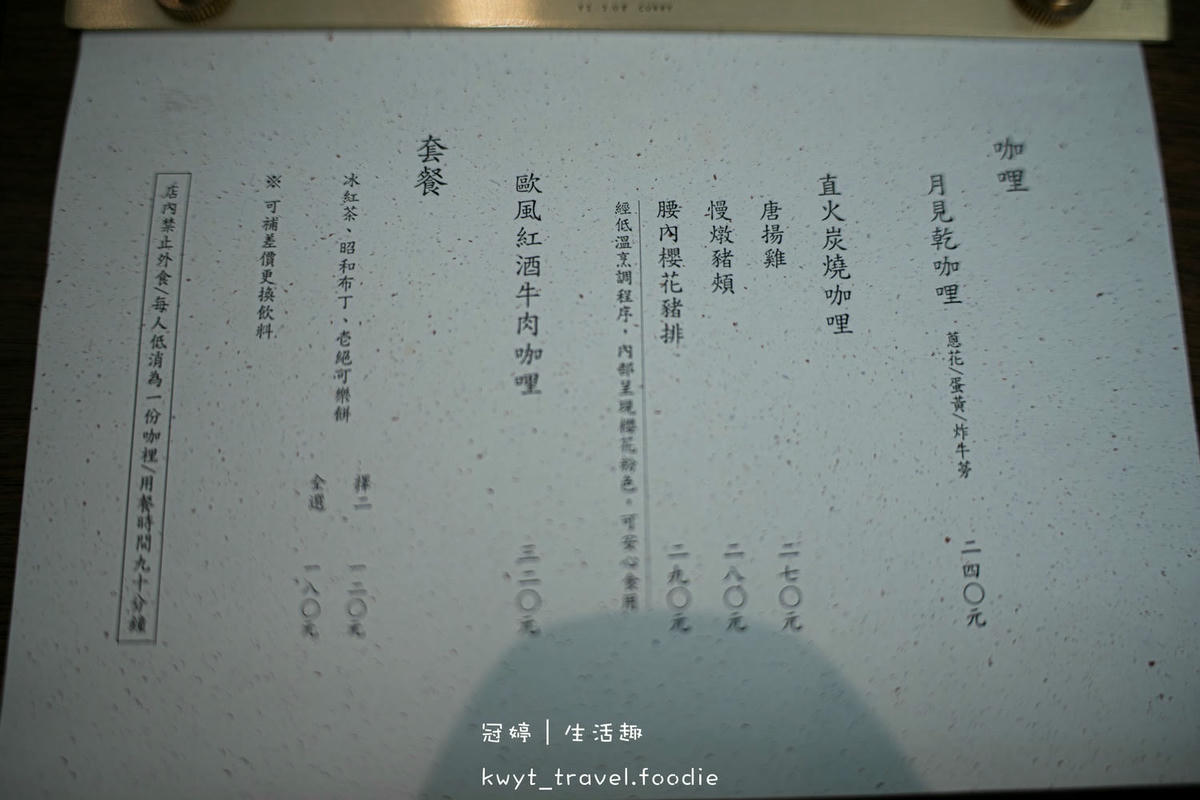 咖哩
月見乾咖哩 蔥花/蛋黃/炸牛蒡 二四〇元
直火炭燒咖哩
唐揚雞 二七〇元
慢燉豬頰 二八〇元
腰內櫻花豬排 二九〇元
經低溫烹調程序，內部呈現櫻花粉色。可安心食用
歐風紅酒牛肉咖哩 三二〇元
套餐
冰紅茶、昭和布丁、壱絕可樂餅 擇二 一二〇元
全選 一八〇元
※ 可補差價更換飲料
店內禁止外食/每人低消為一份咖哩/用餐時間九十分鐘
冠婷｜生活趣
kwyt_travel.foodie